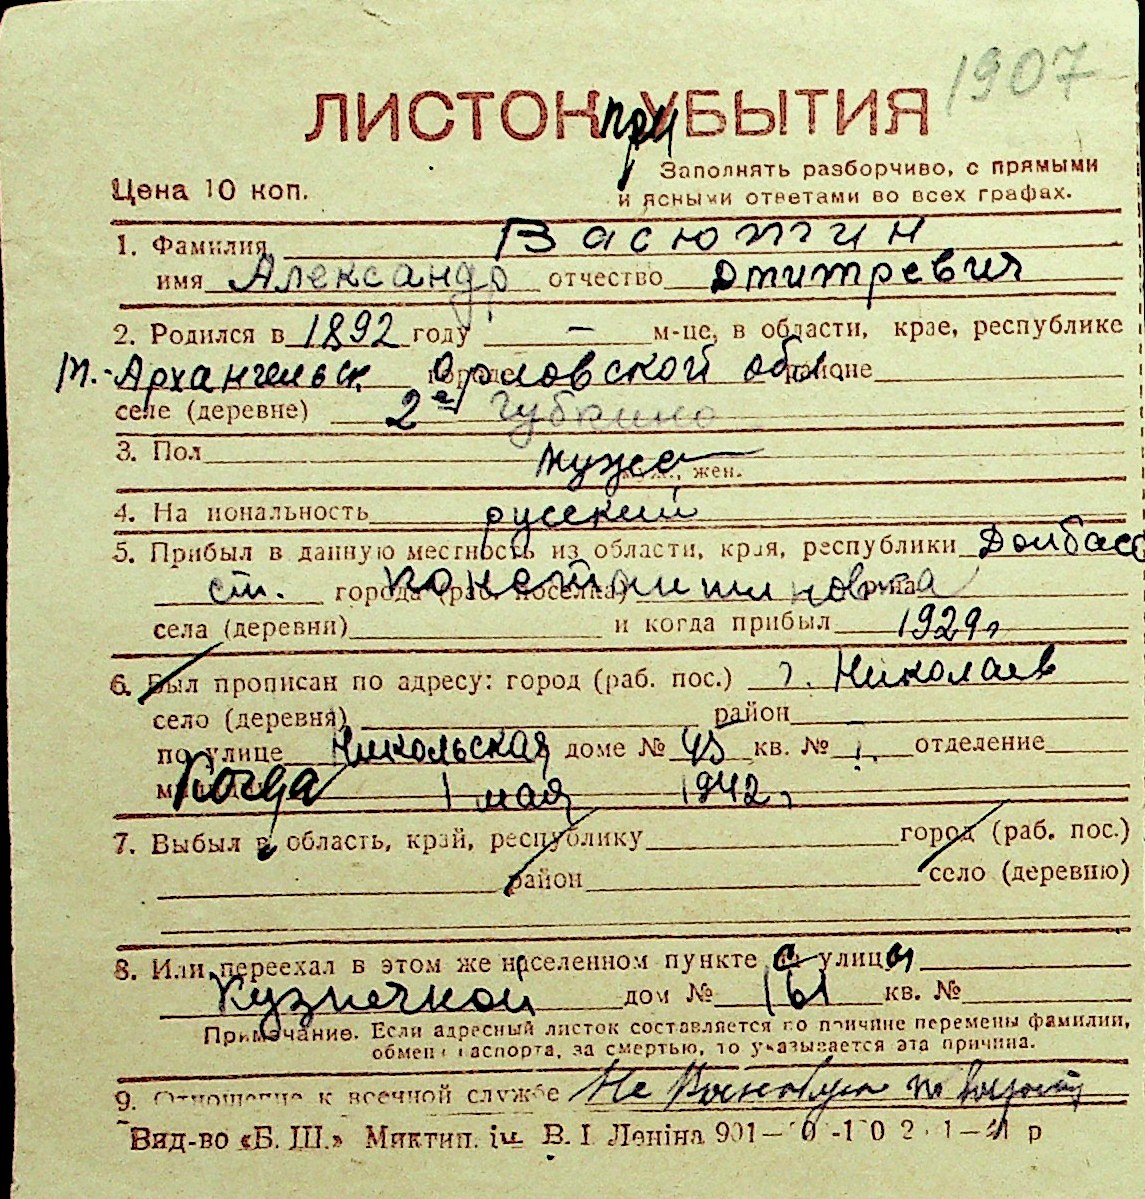 1907
ЛИСТОК при УБЫТИЯ
Цена 10 коп.
Заполнять разборчиво, с прямыми
и ясными ответами во всех графах.
1. Фамилия Васютин
имя Александр отчество Дмитревич
2. Родился в 1892 году — м-це, в области, крае, республике
Архангельск городе Орловской обл. районе
селе (деревне) 2е Губкино
3. Пол муж., жен.
4. На иональность русский
5. Прибыл в данную местность из области, края, республики Донбасс
ст. города (раб. поселка) Константиновка
села (деревни) и когда прибыл 1929г
6. Был прописан по адресу: город (раб. пос.) г. Николаев
село (деревня) район
по улице Никольская доме № 45 кв. № 1. отделение
Когда 1 мая 1942 г
7. Выбыл в область, край, республику город (раб. пос.)
район село (деревню)
8. Или переехал в этом же населенном пункте с улицы
Кузнечной дом № 161 кв. №
Примечание. Если адресный листок составляется по причине перемены фамилии,
обмена паспорта, за смертью, то указывается эта причина.
9. Отношение к военной службе Не по возрасту
Вид-во «Б. Ш.» Миктип. ім. В. І Леніна